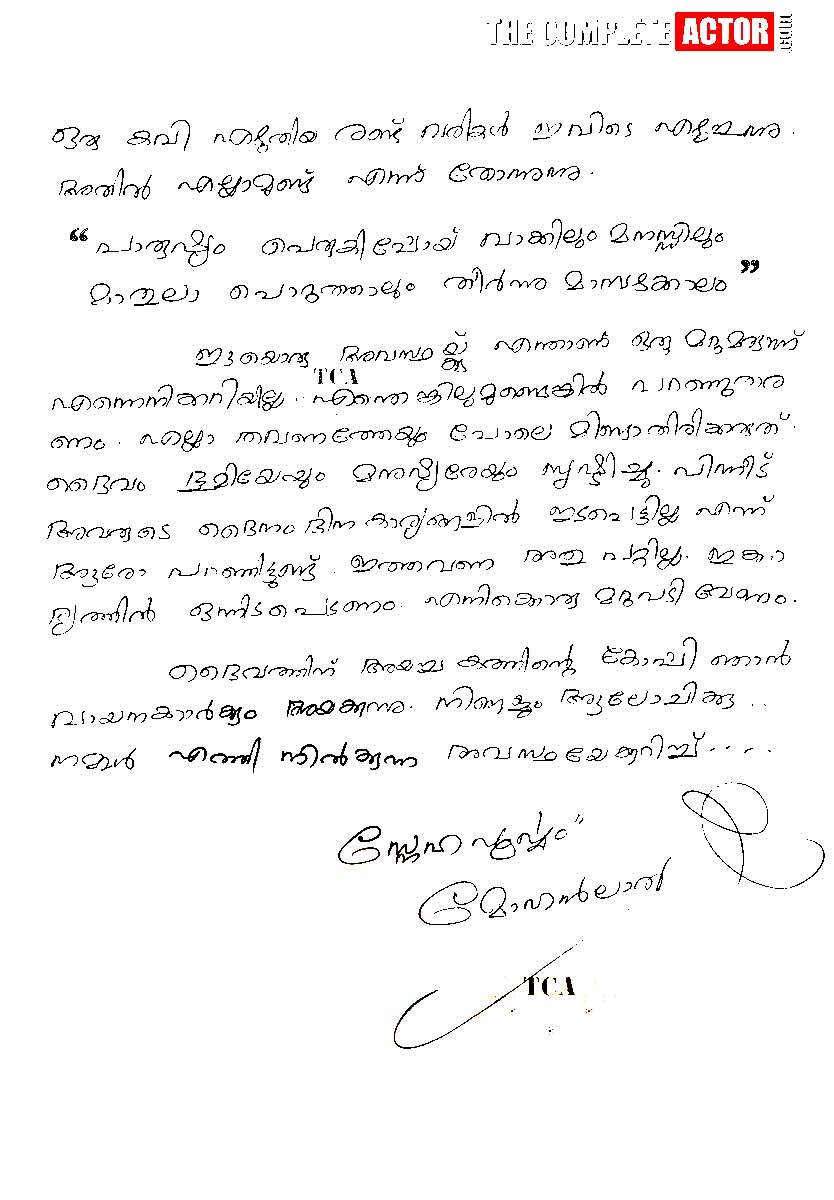 THE COMPLETE ACTOR
ഒരു കവി എഴുതിയ രണ്ട് വരികൾ ഇവിടെ എഴുതുന്നു.
അതിൽ എല്ലാമുണ്ട് എന്ന് തോന്നുന്നു.
“പാരുഷ്യം പെരുകിപ്പോയ് വാക്കിലും മനസ്സിലും
മാതുലാ പൊറുത്താലും തീർന്നു മാമ്പഴക്കാലം”
ഇതുപോലൊരു അവസ്ഥയ്ക്ക് എന്താണ് ഒരു മറുമരുന്ന്
TCA
എന്നെനിക്കറിയില്ല. എന്തെങ്കിലുമുണ്ടെങ്കിൽ പറഞ്ഞുതര
ണം. എല്ലാ തവണത്തേയും പോലെ മിണ്ടാതിരിക്കരുത്.
ദൈവം ഭൂമിയേയും മനുഷ്യരേയും സൃഷ്ടിച്ചു. പിന്നീട്
അവരുടെ ദൈനംദിന കാര്യങ്ങളിൽ ഇടപെട്ടില്ല എന്ന്
ആരോ പറഞ്ഞിട്ടുണ്ട്. ഇത്തവണ അതു പറ്റില്ല. ഇക്കാ
ര്യത്തിൽ ഒന്നിടപെടണം. എനിക്കൊരു മറുപടി വേണം.
ദൈവത്തിന് അയച്ച കത്തിന്റെ കോപ്പി ഞാൻ
വായനക്കാർക്കും അയക്കുന്നു. നിങ്ങളും ആലോചിക്കൂ..
നമ്മൾ എത്തി നിൽക്കുന്ന അവസ്ഥയേക്കുറിച്ച്....
സ്നേഹപൂർവ്വം
മോഹൻലാൽ
TCA